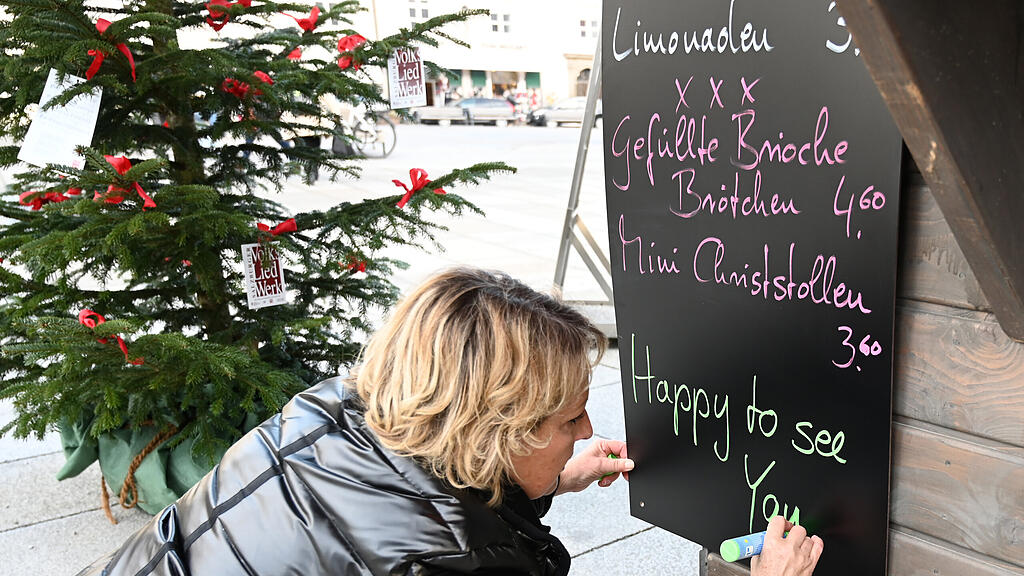 Volk
Lied
Werk
Volk
Lied
Werk
Limonaden 3.
x x x
Gefüllte Brioche
Brötchen 4.60
Mini Christstollen
3.60
Happy to see
You